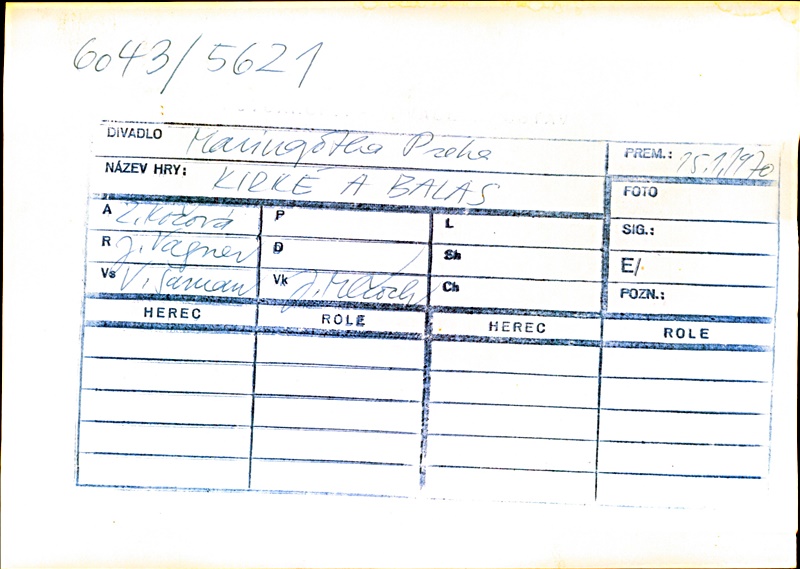 6043/5621
DIVADLO Maringotka Praha PREM.: 15.1.1970
NÁZEV HRY: KIRKÉ A BALAS FOTO
A Z. Kočová P L SIG.:
R J. Vágner D Sh E/
Vs V. Šaman Vk Ch POZN.:
HEREC ROLE HEREC ROLE